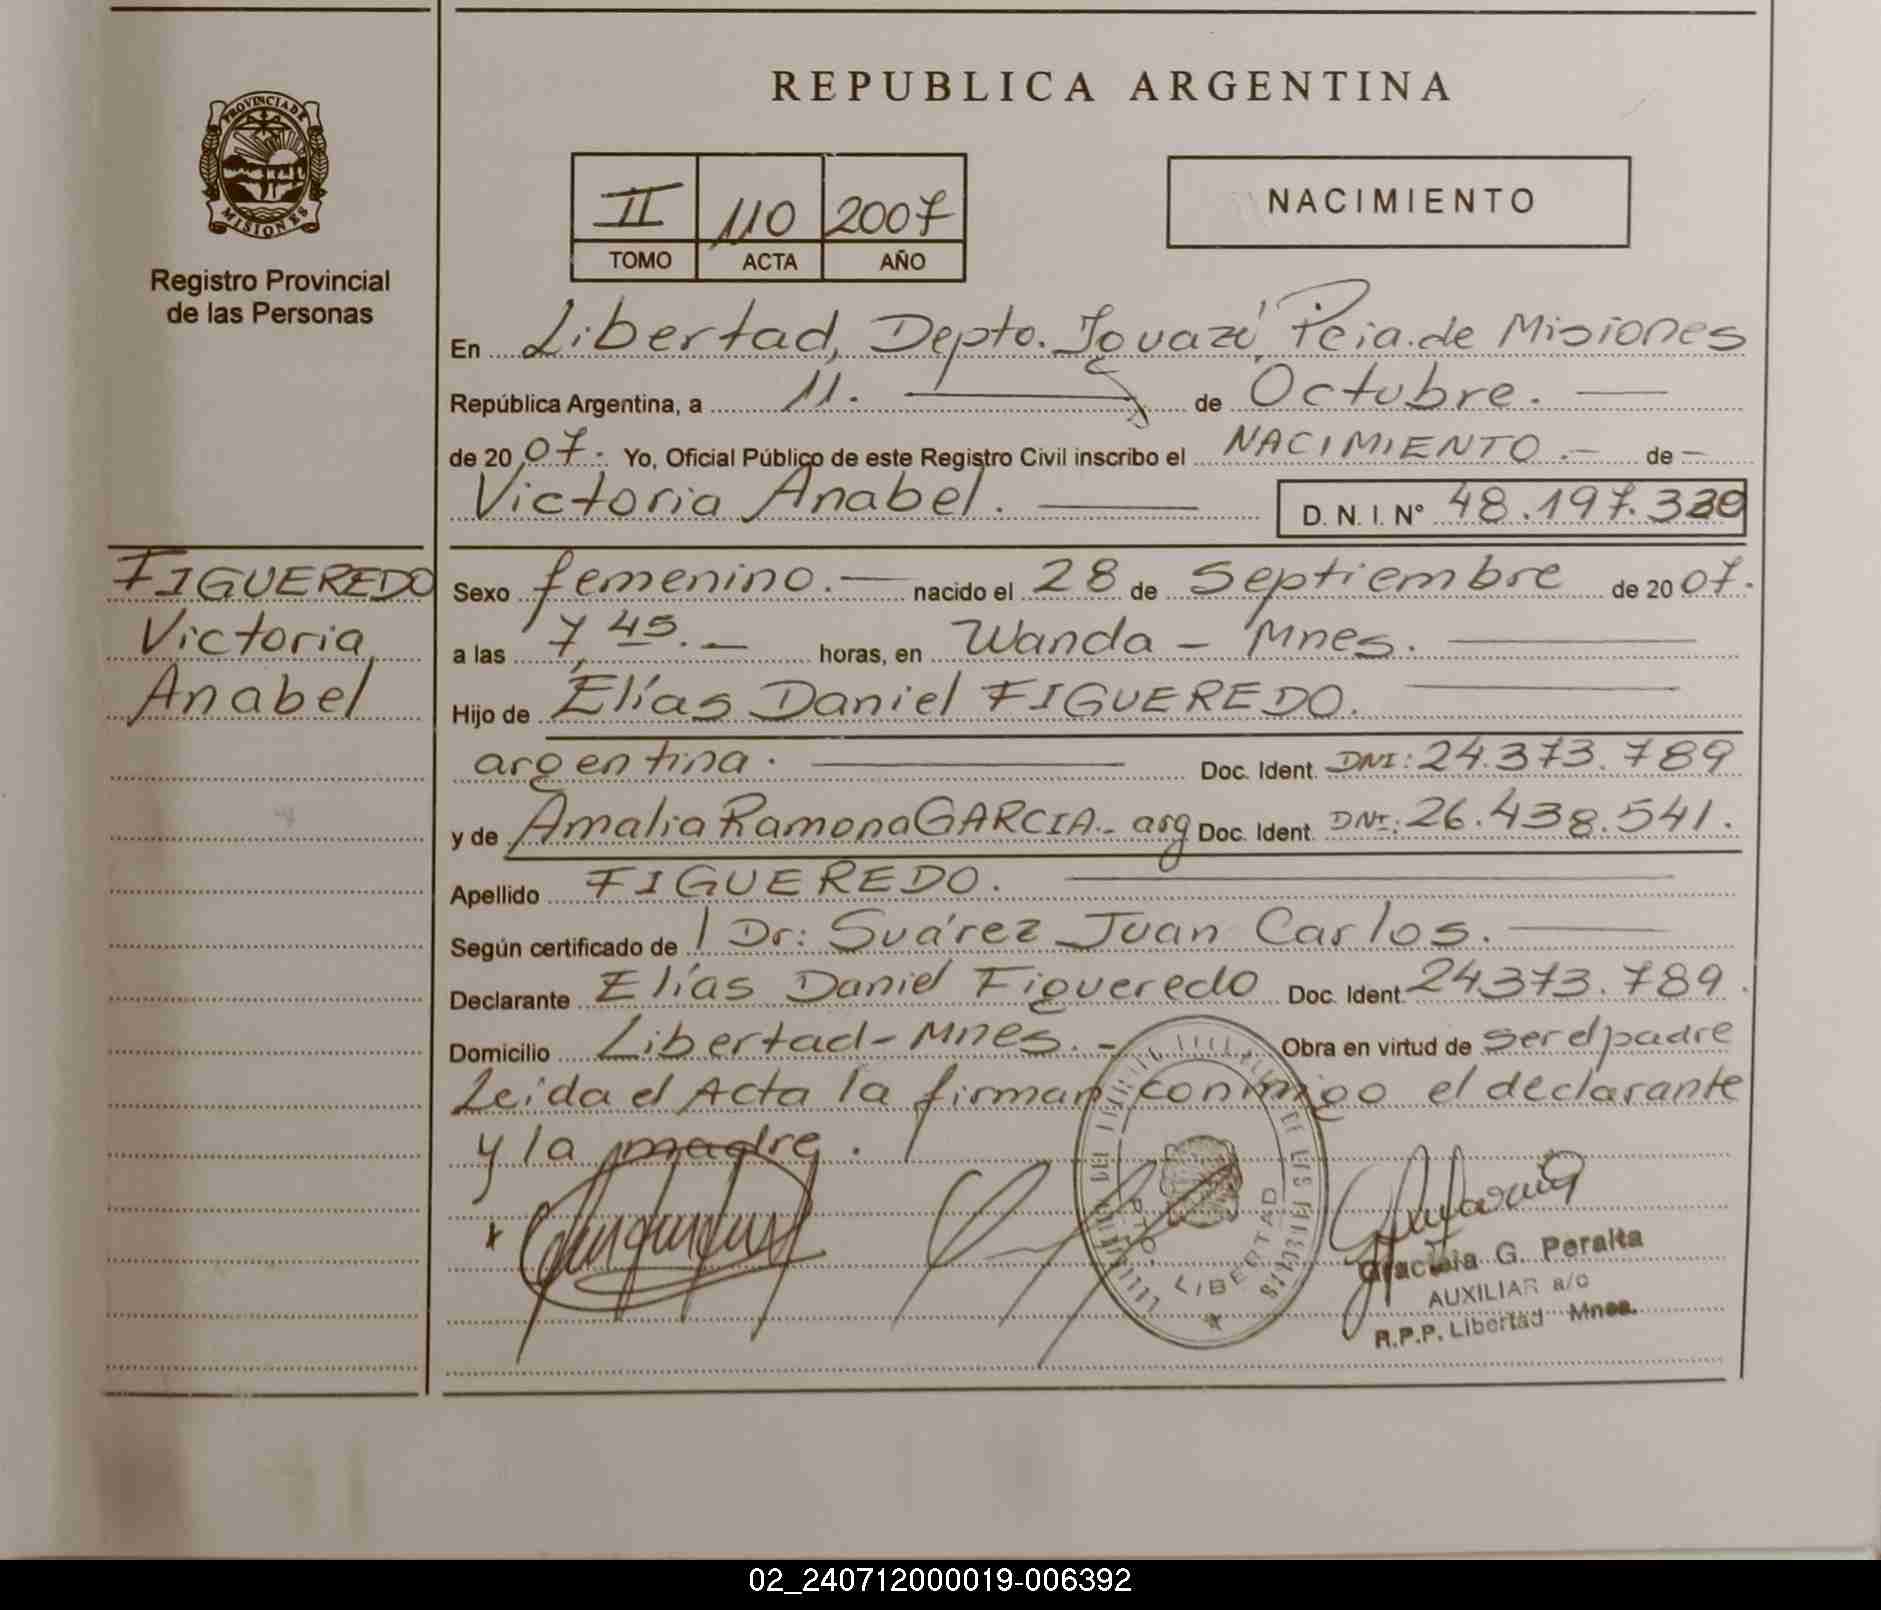 REPUBLICA ARGENTINA
PROVINCIA DE
MISIONES
Registro Provincial
de las Personas
II 110 2007
TOMO ACTA AÑO
NACIMIENTO
En Libertad, Depto. Iguazú, Pcia. de Misiones
República Argentina, a 11. de Octubre.
de 2007. Yo, Oficial Público de este Registro Civil inscribo el NACIMIENTO.- de -
Victoria Anabel. D. N. I. N° 48.197.330
FIGUEREDO
Victoria
Anabel
Sexo femenino. nacido el 28 de Septiembre de 2007.
a las 7,45.- horas, en Wanda - Mnes.
Hijo de Elías Daniel FIGUEREDO.
argentina. Doc. Ident. DNI: 24.373.789
y de Amalia Ramona GARCIA.- arg Doc. Ident. DNI: 26.438.541.
Apellido FIGUEREDO.
Según certificado de Dr: Suárez Juan Carlos.
Declarante Elías Daniel Figueredo Doc. Ident. 24373.789.
Domicilio Libertad-Mnes.- Obra en virtud de ser el padre
Leida el Acta la firman conmigo el declarante
y la madre.
LIBERTAD
Graciela G. Peralta
AUXILIAR a/c
R.P.P. Libertad Mnes.
02_240712000019-006392